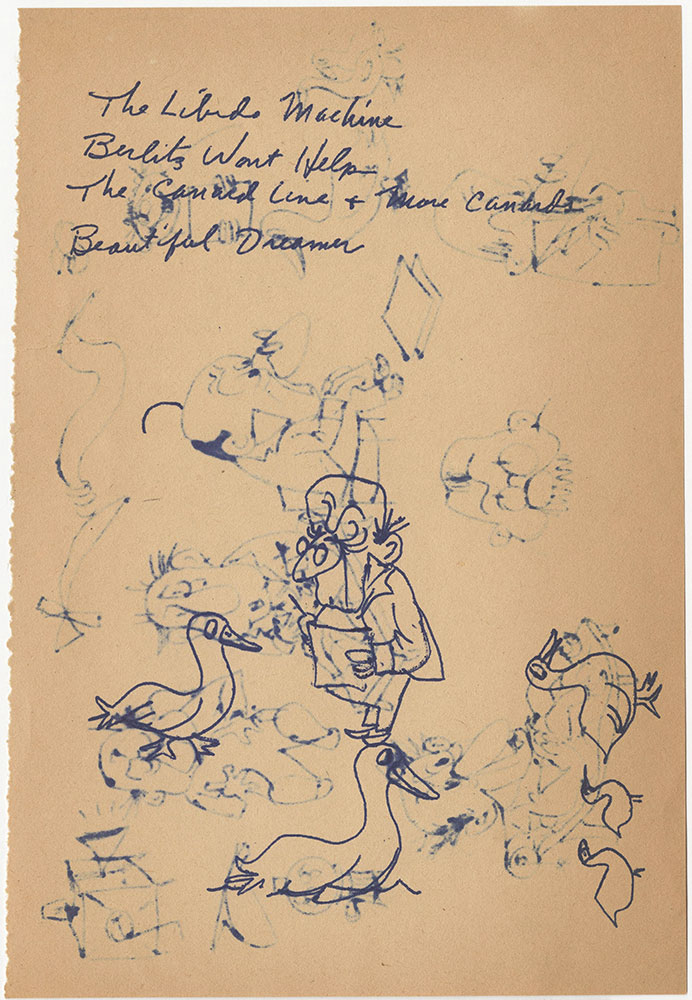 The Libido Machine
Berlitz Wont Help
The Canard Line + More Canards
Beautiful Dreamer